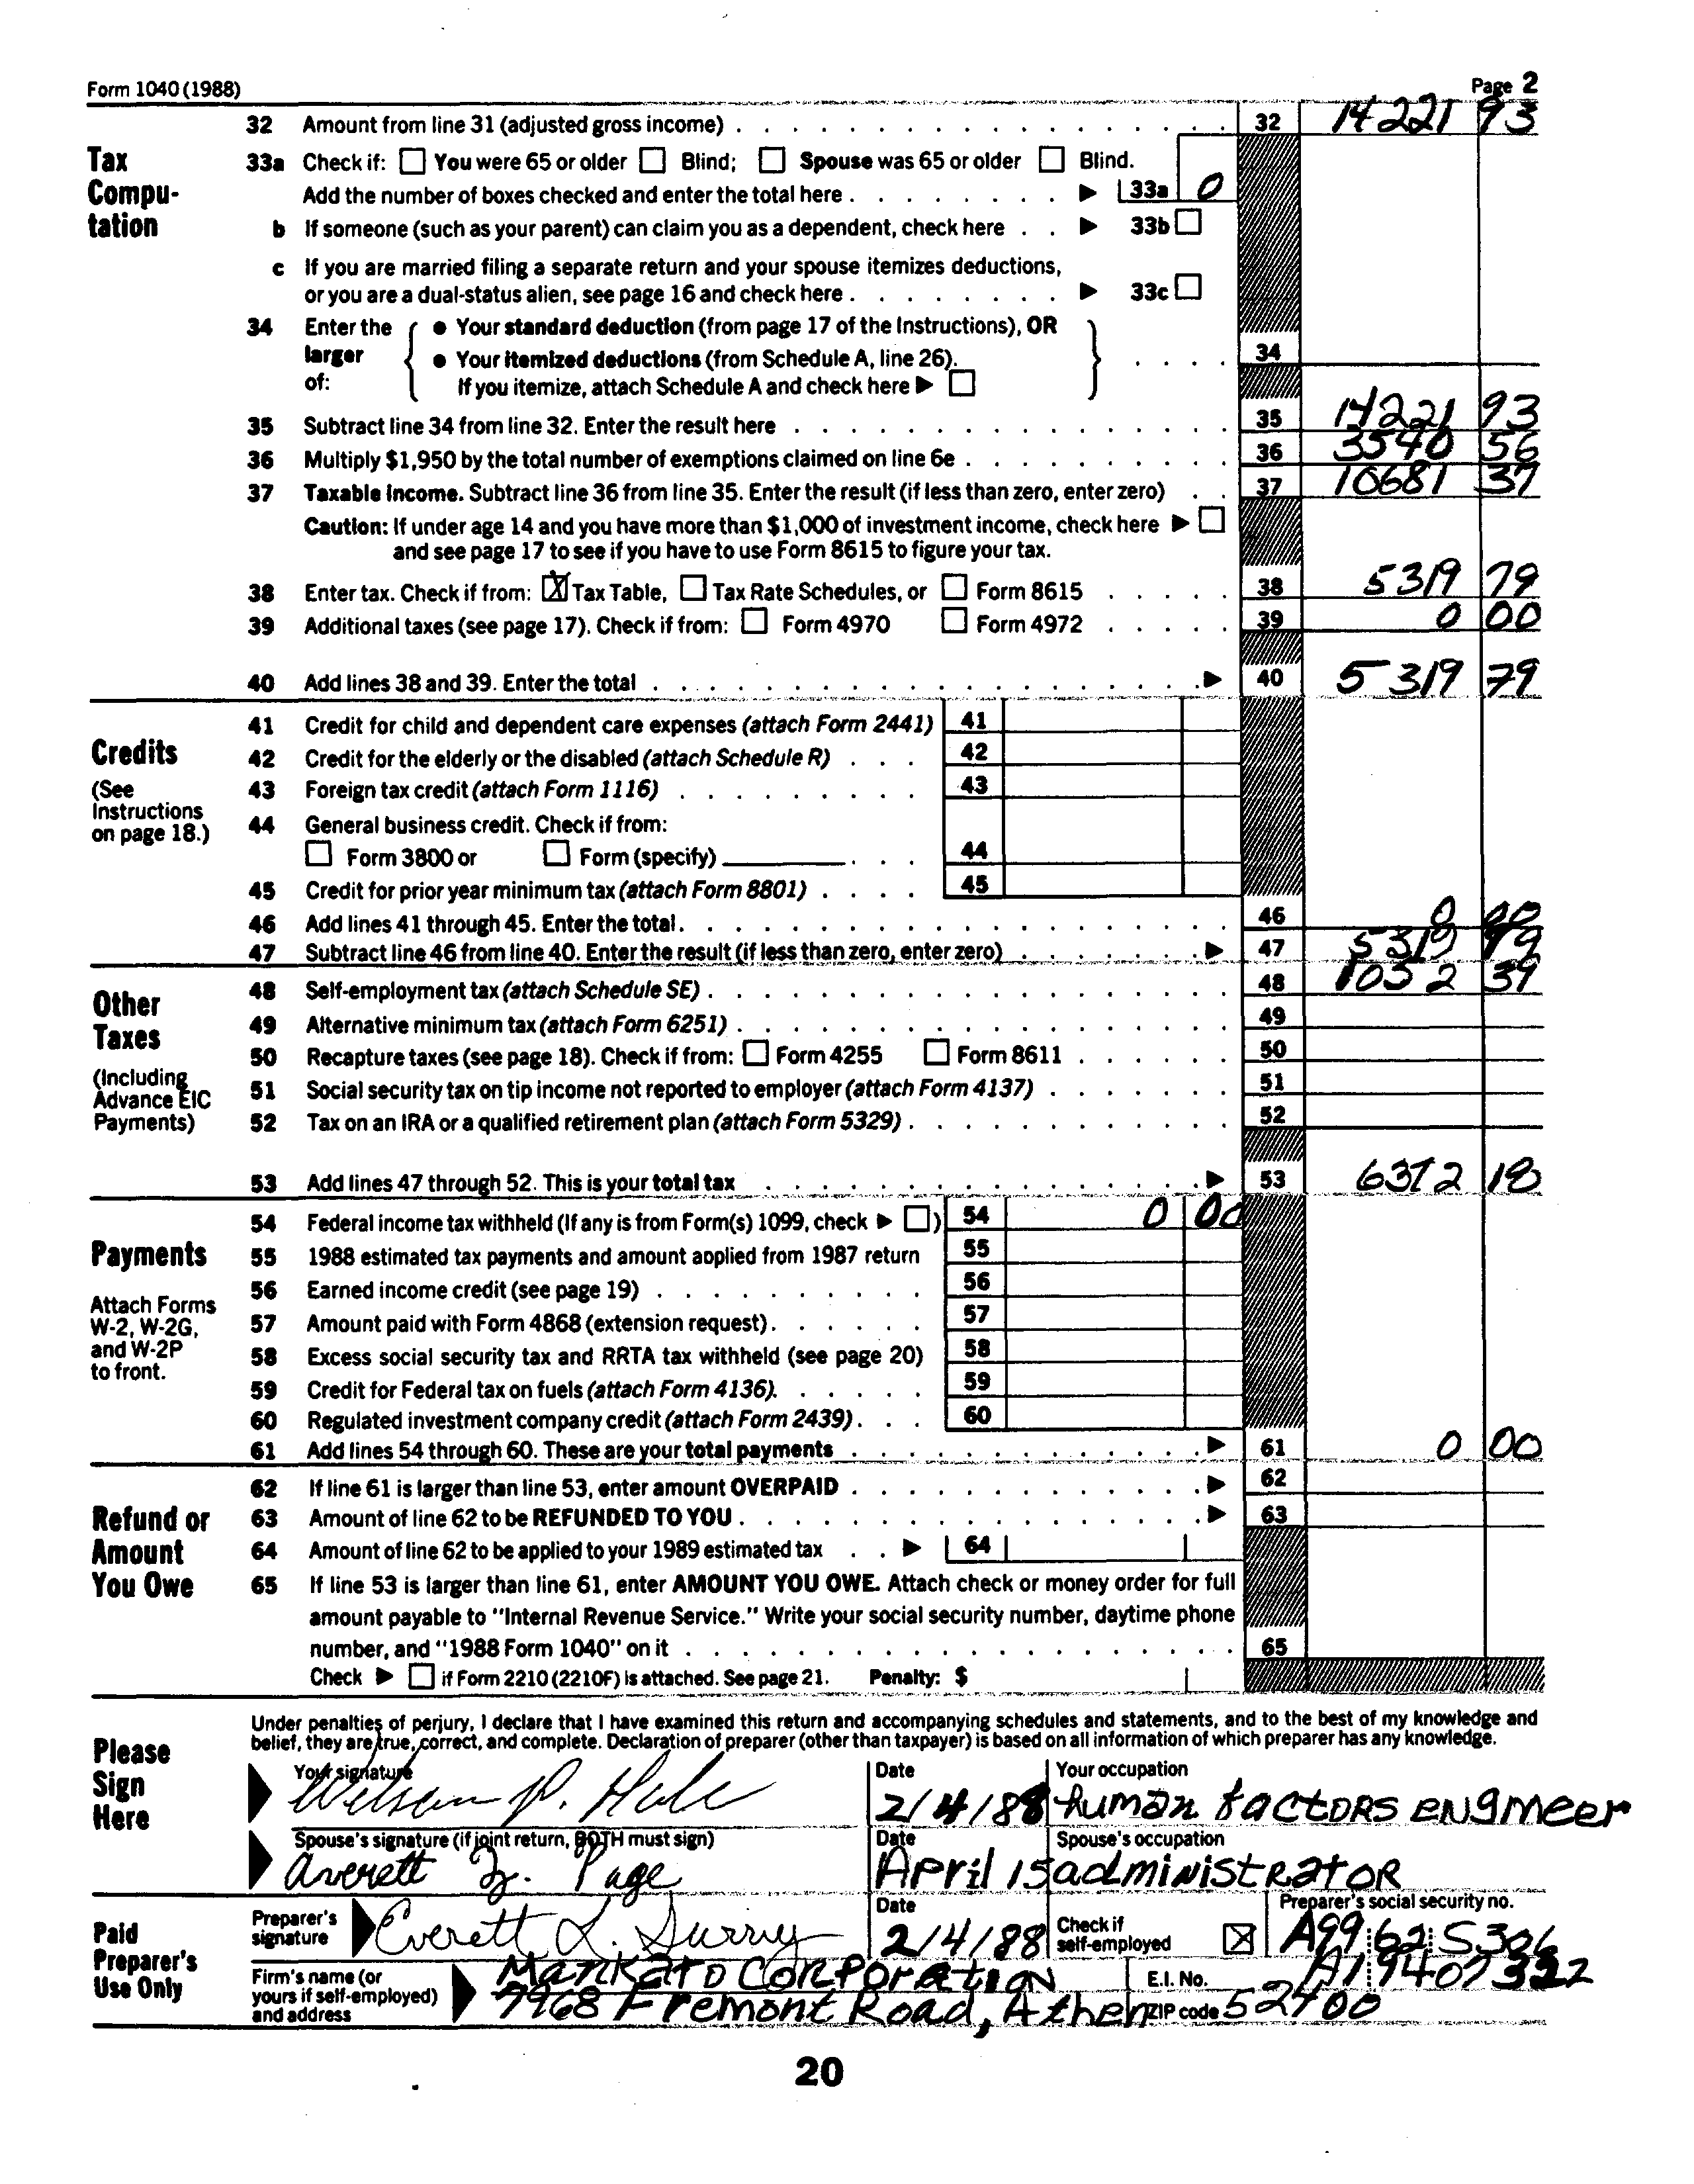 Form 1040 (1988) Page 2
32 Amount from line 31 (adjusted gross income) 32 14221 93
Tax Computation
33a Check if: You were 65 or older Blind; Spouse was 65 or older Blind.
Add the number of boxes checked and enter the total here 33a 0
b If someone (such as your parent) can claim you as a dependent, check here 33b
c If you are married filing a separate return and your spouse itemizes deductions,
or you are a dual-status alien, see page 16 and check here 33c
34 Enter the larger of: • Your standard deduction (from page 17 of the Instructions), OR
• Your itemized deductions (from Schedule A, line 26). 34
If you itemize, attach Schedule A and check here
35 Subtract line 34 from line 32. Enter the result here 35 14221 93
36 Multiply $1,950 by the total number of exemptions claimed on line 6e 36 3540 56
37 Taxable income. Subtract line 36 from line 35. Enter the result (if less than zero, enter zero) 37 10681 37
Caution: If under age 14 and you have more than $1,000 of investment income, check here
and see page 17 to see if you have to use Form 8615 to figure your tax.
38 Enter tax. Check if from: X Tax Table, Tax Rate Schedules, or Form 8615 38 5319 79
39 Additional taxes (see page 17). Check if from: Form 4970 Form 4972 39 0 00
40 Add lines 38 and 39. Enter the total 40 5319 79
Credits
(See Instructions on page 18.)
41 Credit for child and dependent care expenses (attach Form 2441) 41
42 Credit for the elderly or the disabled (attach Schedule R) 42
43 Foreign tax credit (attach Form 1116) 43
44 General business credit. Check if from:
Form 3800 or Form (specify) 44
45 Credit for prior year minimum tax (attach Form 8801) 45
46 Add lines 41 through 45. Enter the total 46 0 00
47 Subtract line 46 from line 40. Enter the result (if less than zero, enter zero) 47 5319 79
Other Taxes
(Including Advance EIC Payments)
48 Self-employment tax (attach Schedule SE) 48 1052 39
49 Alternative minimum tax (attach Form 6251) 49
50 Recapture taxes (see page 18). Check if from: Form 4255 Form 8611 50
51 Social security tax on tip income not reported to employer (attach Form 4137) 51
52 Tax on an IRA or a qualified retirement plan (attach Form 5329) 52
53 Add lines 47 through 52. This is your total tax 53 6372 18
Payments
Attach Forms W-2, W-2G, and W-2P to front.
54 Federal income tax withheld (If any is from Form(s) 1099, check ) 54 0 00
55 1988 estimated tax payments and amount applied from 1987 return 55
56 Earned income credit (see page 19) 56
57 Amount paid with Form 4868 (extension request) 57
58 Excess social security tax and RRTA tax withheld (see page 20) 58
59 Credit for Federal tax on fuels (attach Form 4136) 59
60 Regulated investment company credit (attach Form 2439) 60
61 Add lines 54 through 60. These are your total payments 61 0 00
Refund or Amount You Owe
62 If line 61 is larger than line 53, enter amount OVERPAID 62
63 Amount of line 62 to be REFUNDED TO YOU 63
64 Amount of line 62 to be applied to your 1989 estimated tax 64
65 If line 53 is larger than line 61, enter AMOUNT YOU OWE. Attach check or money order for full
amount payable to "Internal Revenue Service." Write your social security number, daytime phone
number, and "1988 Form 1040" on it 65
Check if Form 2210 (2210F) is attached. See page 21. Penalty: $
Please Sign Here
Under penalties of perjury, I declare that I have examined this return and accompanying schedules and statements, and to the best of my knowledge and
belief, they are true, correct, and complete. Declaration of preparer (other than taxpayer) is based on all information of which preparer has any knowledge.
Your signature Date Your occupation
Wilson P. Hale 2/4/88 human factors engineer
Spouse's signature (if joint return, BOTH must sign) Date Spouse's occupation
Averett Z. Page April 15 administrator
Paid Preparer's Use Only
Preparer's signature Everett L. Surry Date 2/4/88 Check if self-employed X Preparer's social security no. A99 62 5306
Firm's name (or yours if self-employed) and address Mankato Corporation E.I. No.
7968 Fremont Road, Athen ZIP code 52400
20